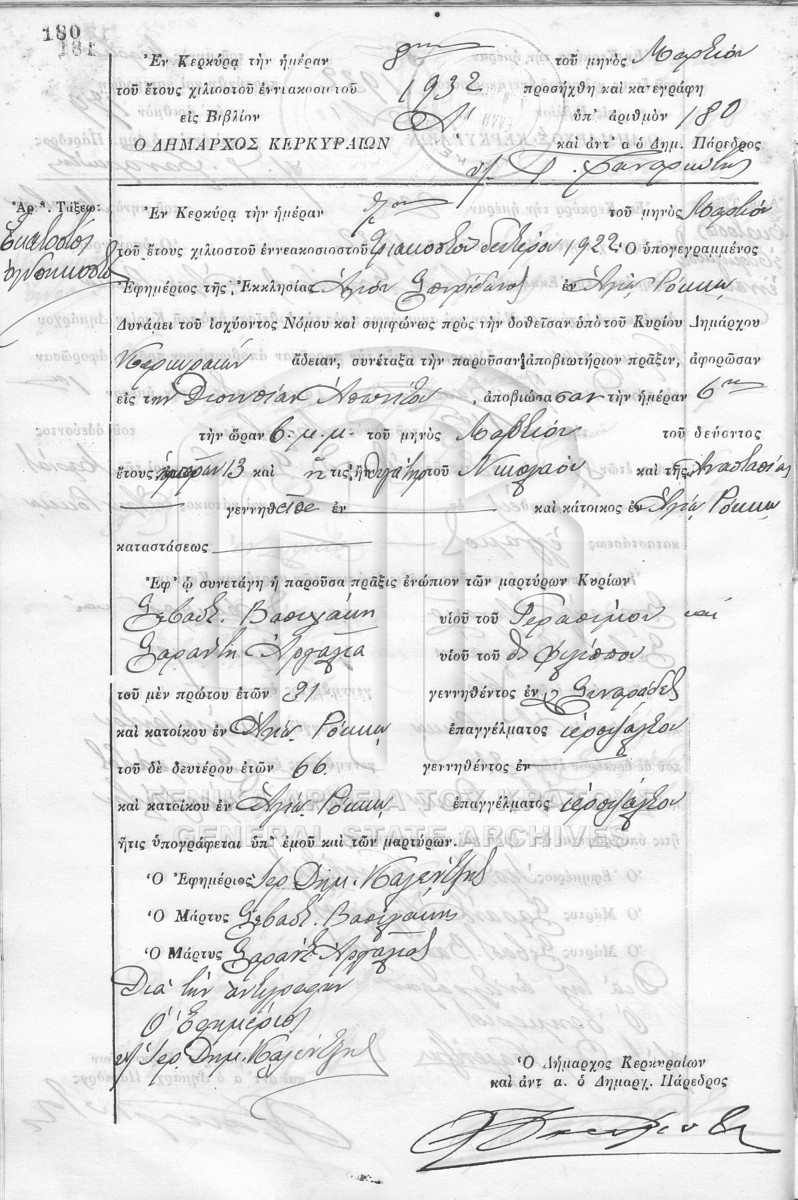 180
181
Ἐν Κερκύρᾳ τὴν ἡμέραν 8ην τοῦ μηνὸς Μαρτίου
τοῦ ἔτους χιλιοστοῦ ἐννιακοσιοστοῦ 1932 προσήχθη καὶ κατεγράφη
εἰς Βιβλίον Α' ὑπ' ἀριθμὸν 180
Ο ΔΗΜΑΡΧΟΣ ΚΕΡΚΥΡΑΙΩΝ καὶ ἀντ' α ὁ Δημ. Πάρεδρος
Ἀρ. Τάξεως
Ἑκατοστὸς
ὀγδοηκοστὸς
Ἐν Κερκύρᾳ τὴν ἡμέραν 7ην τοῦ μηνὸς Μαρτίου
τοῦ ἔτους χιλιοστοῦ ἐννεακοσιοστοῦ τριακοστοῦ δευτέρου 1922 Ὁ ὑπογεγραμμένος
Ἐφημέριος τῆς Ἐκκλησίας Ἁγίου Σπυρίδωνος ἐν Ἁγίῳ Ρόκκῳ
Δυνάμει τοῦ ἰσχύοντος Νόμου καὶ συμφώνως πρὸς τὴν δοθεῖσαν ὑπὸ τοῦ Κυρίου Δημάρχου
Κερκυραίων ἄδειαν, συνέταξα τὴν παροῦσαν ἀποβιωτήριον πρᾶξιν, ἀφορῶσαν
εἰς τὴν Διονυσίαν ἀποβιώσασαν τὴν ἡμέραν 6ην
τὴν ὥραν 6 μ.μ. τοῦ μηνὸς Μαρτίου τοῦ δεύοντος
ἔτους ἡμερῶν 13 καὶ ἥτις ἦν θυγάτηρ τοῦ Νικολάου καὶ τῆς Ἀναστασίας
γεννηθεῖσα ἐν καὶ κάτοικος ἐν Ἁγίῳ Ρόκκῳ
καταστάσεως
Ἐφ' ᾧ συνετάγη ἡ παροῦσα πρᾶξις ἐνώπιον τῶν μαρτύρων Κυρίων
Σεβαστ. Βασιλάκη υἱοῦ τοῦ Γερασίμου καὶ
Σαράντη υἱοῦ τοῦ Φιλίππου
τοῦ μὲν πρώτου ἐτῶν 31 γεννηθέντος ἐν Σιναράδες
καὶ κατοίκου ἐν Ἁγίῳ Ρόκκῳ ἐπαγγέλματος ἱεροψάλτου
τοῦ δὲ δευτέρου ἐτῶν 66 γεννηθέντος ἐν
καὶ κατοίκου ἐν Ἁγίῳ Ρόκκῳ ἐπαγγέλματος ἱεροψάλτου
ΓΕΝΙΚΑ ΑΡΧΕΙΑ ΤΟΥ ΚΡΑΤΟΥΣ
GENERAL STATE ARCHIVES
ἥτις ὑπογράφεται ὑπ' ἐμοῦ καὶ τῶν μαρτύρων.
Ὁ Ἐφημέριος Ἱερ. Δημ. Καλέντζης
Ὁ Μάρτυς Σεβαστ. Βασιλάκης
Ὁ Μάρτυς Σαράντ.
Διὰ τὴν ἀντιγραφὴν
Ὁ Ἐφημέριος
Ἱερ. Δημ. Καλέντζης
Ὁ Δήμαρχος Κερκυραίων
καὶ ἀντ α. ὁ Δημαρχ. Πάρεδρος